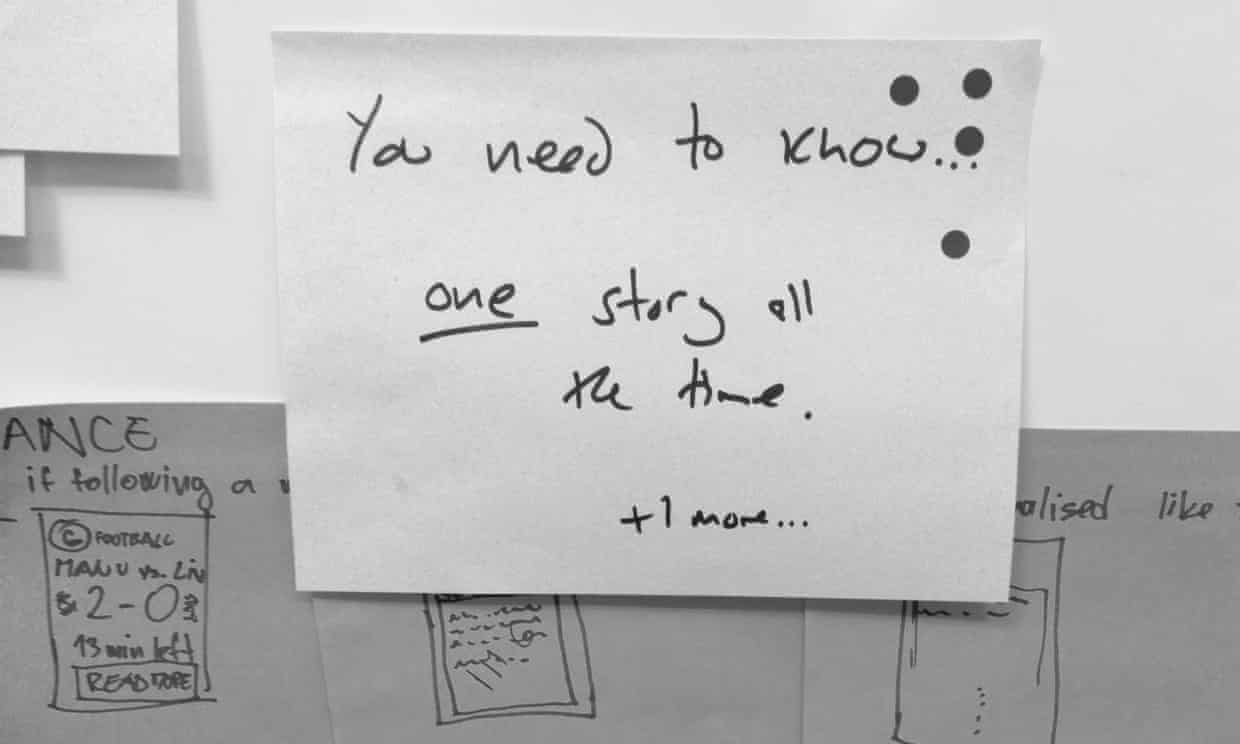 You need to know...
one story all
the time.
+1 more...
ANCE
if following a
G FOOTBALL
MAN U vs. Liv
2-0
13 min left
READ MORE
alised like